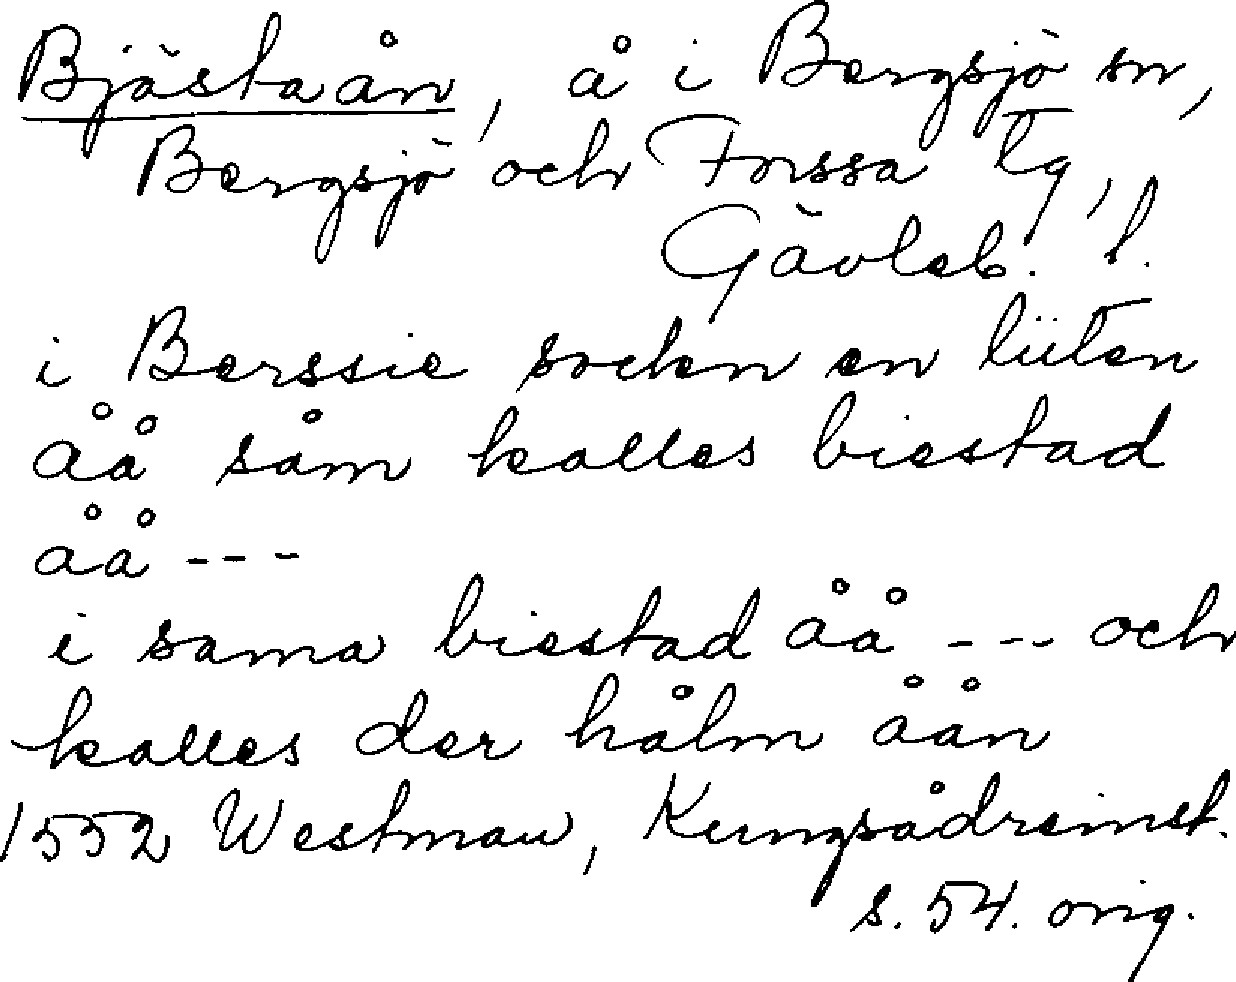 Bjåstaån, å i Bergsjö sn,
Bergsjö och Forssa tg,
Gävleb. l.
i Berssie socken en liiten
åå såm kalles biestad
åå ---
i sama biestad åå --- och
kalles der hålm åån
1552 Westman, Kungsådreinst.
s. 54. orig.